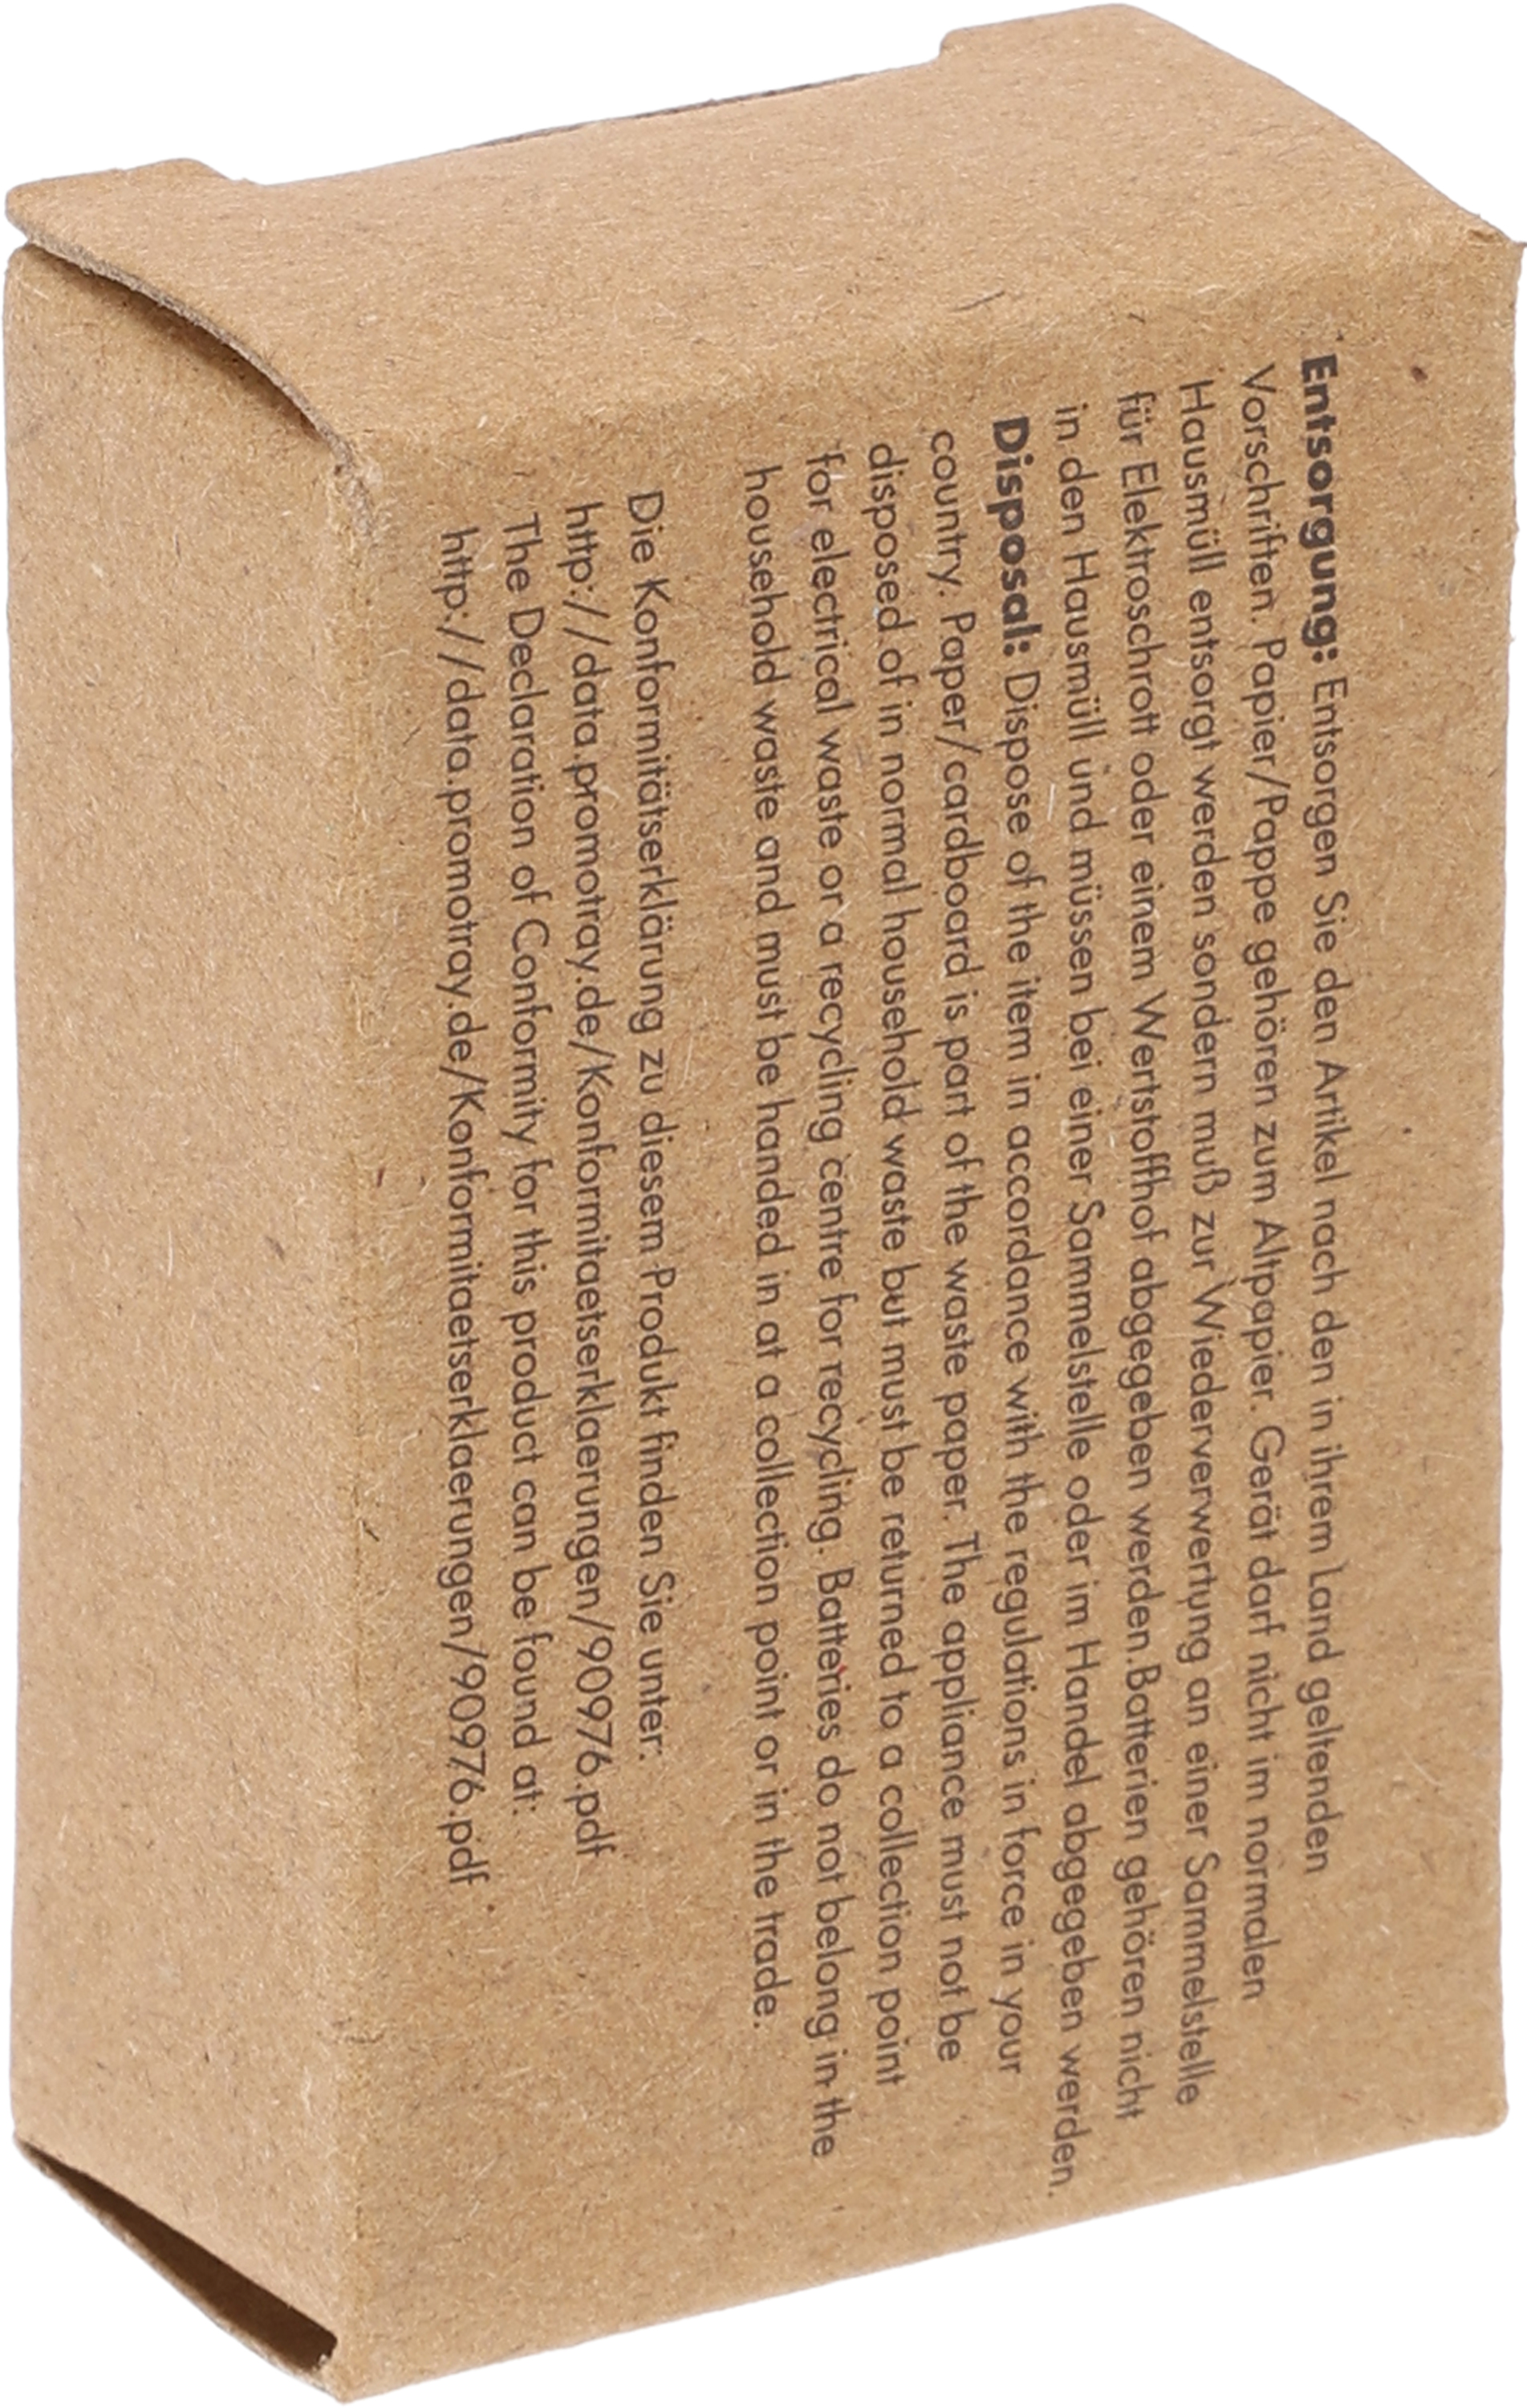 Entsorgung: Entsorgen Sie den Artikel nach den in ihrem Land geltenden
Vorschriften. Papier/Pappe gehören zum Altpapier. Gerät darf nicht im normalen
Hausmüll entsorgt werden sondern muß zur Wiederverwertung an einer Sammelstelle
für Elektroschrott oder einem Wertstoffhof abgegeben werden.Batterien gehören nicht
in den Hausmüll und müssen bei einer Sammelstelle oder im Handel abgegeben werden.
Disposal: Dispose of the item in accordance with the regulations in force in your
country. Paper/cardboard is part of the waste paper. The appliance must not be
disposed of in normal household waste but must be returned to a collection point
for electrical waste or a recycling centre for recycling. Batteries do not belong in the
household waste and must be handed in at a collection point or in the trade.
Die Konformitätserklärung zu diesem Produkt finden Sie unter:
http://data.promotray.de/Konformitaetserklaerungen/90976.pdf
The Declaration of Conformity for this product can be found at:
http://data.promotray.de/Konformitaetserklaerungen/90976.pdf